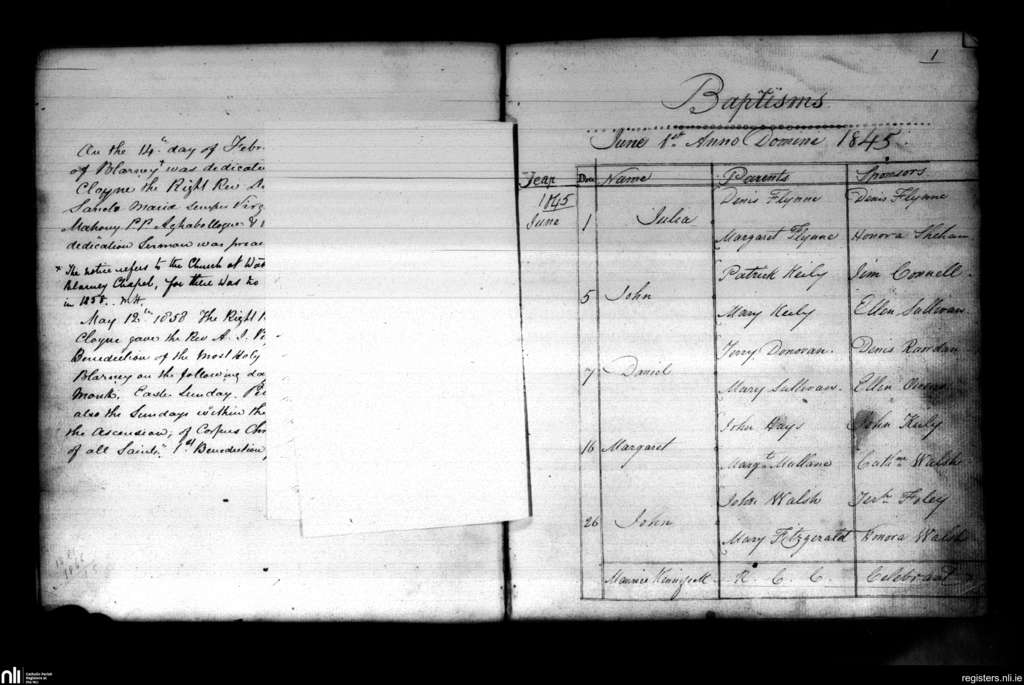 On the 14th day of Febr
of Blarney was dedicatio
Cloyne the Right Rev D
Sancta Maria Semper Virg
Mahony P.P. Aghabollogue &
dedication Sermon was preac
* The notice refers to the Church at Wa
Blarney Chapel, for there was no
in 1858. M.H.
May 12th 1858 The Right
Cloyne gave the Rev A. J.
Benediction of the Most Holy
Blarney on the following da
Month. Easter Sunday.
also the Sundays within the
the Ascension, of Corpus Chr
of all Saints. 1st Benediction
1
Baptisms
June 1st Anno Domine 1845
Year Name Parents Sponsors
1845 Denis Flynne Denis Flynne
June 1 Julia
Margaret Flynne Honora Sheham
Patrick Keily Jim Connell
5 John
Mary Keily Ellen Sullivan
Terry Donovan Denis Reardan
7 Daniel
Mary Sullivan. Ellen
John Hays John Keily
16 Margaret
Margt Mullane Cathne Walsh
John Walsh Foley
26 John
Mary Fitzgerald Honora Walsh
Maurice R. C. C. Celebrant
nli Catholic Parish Registers at the NLI
registers.nli.ie